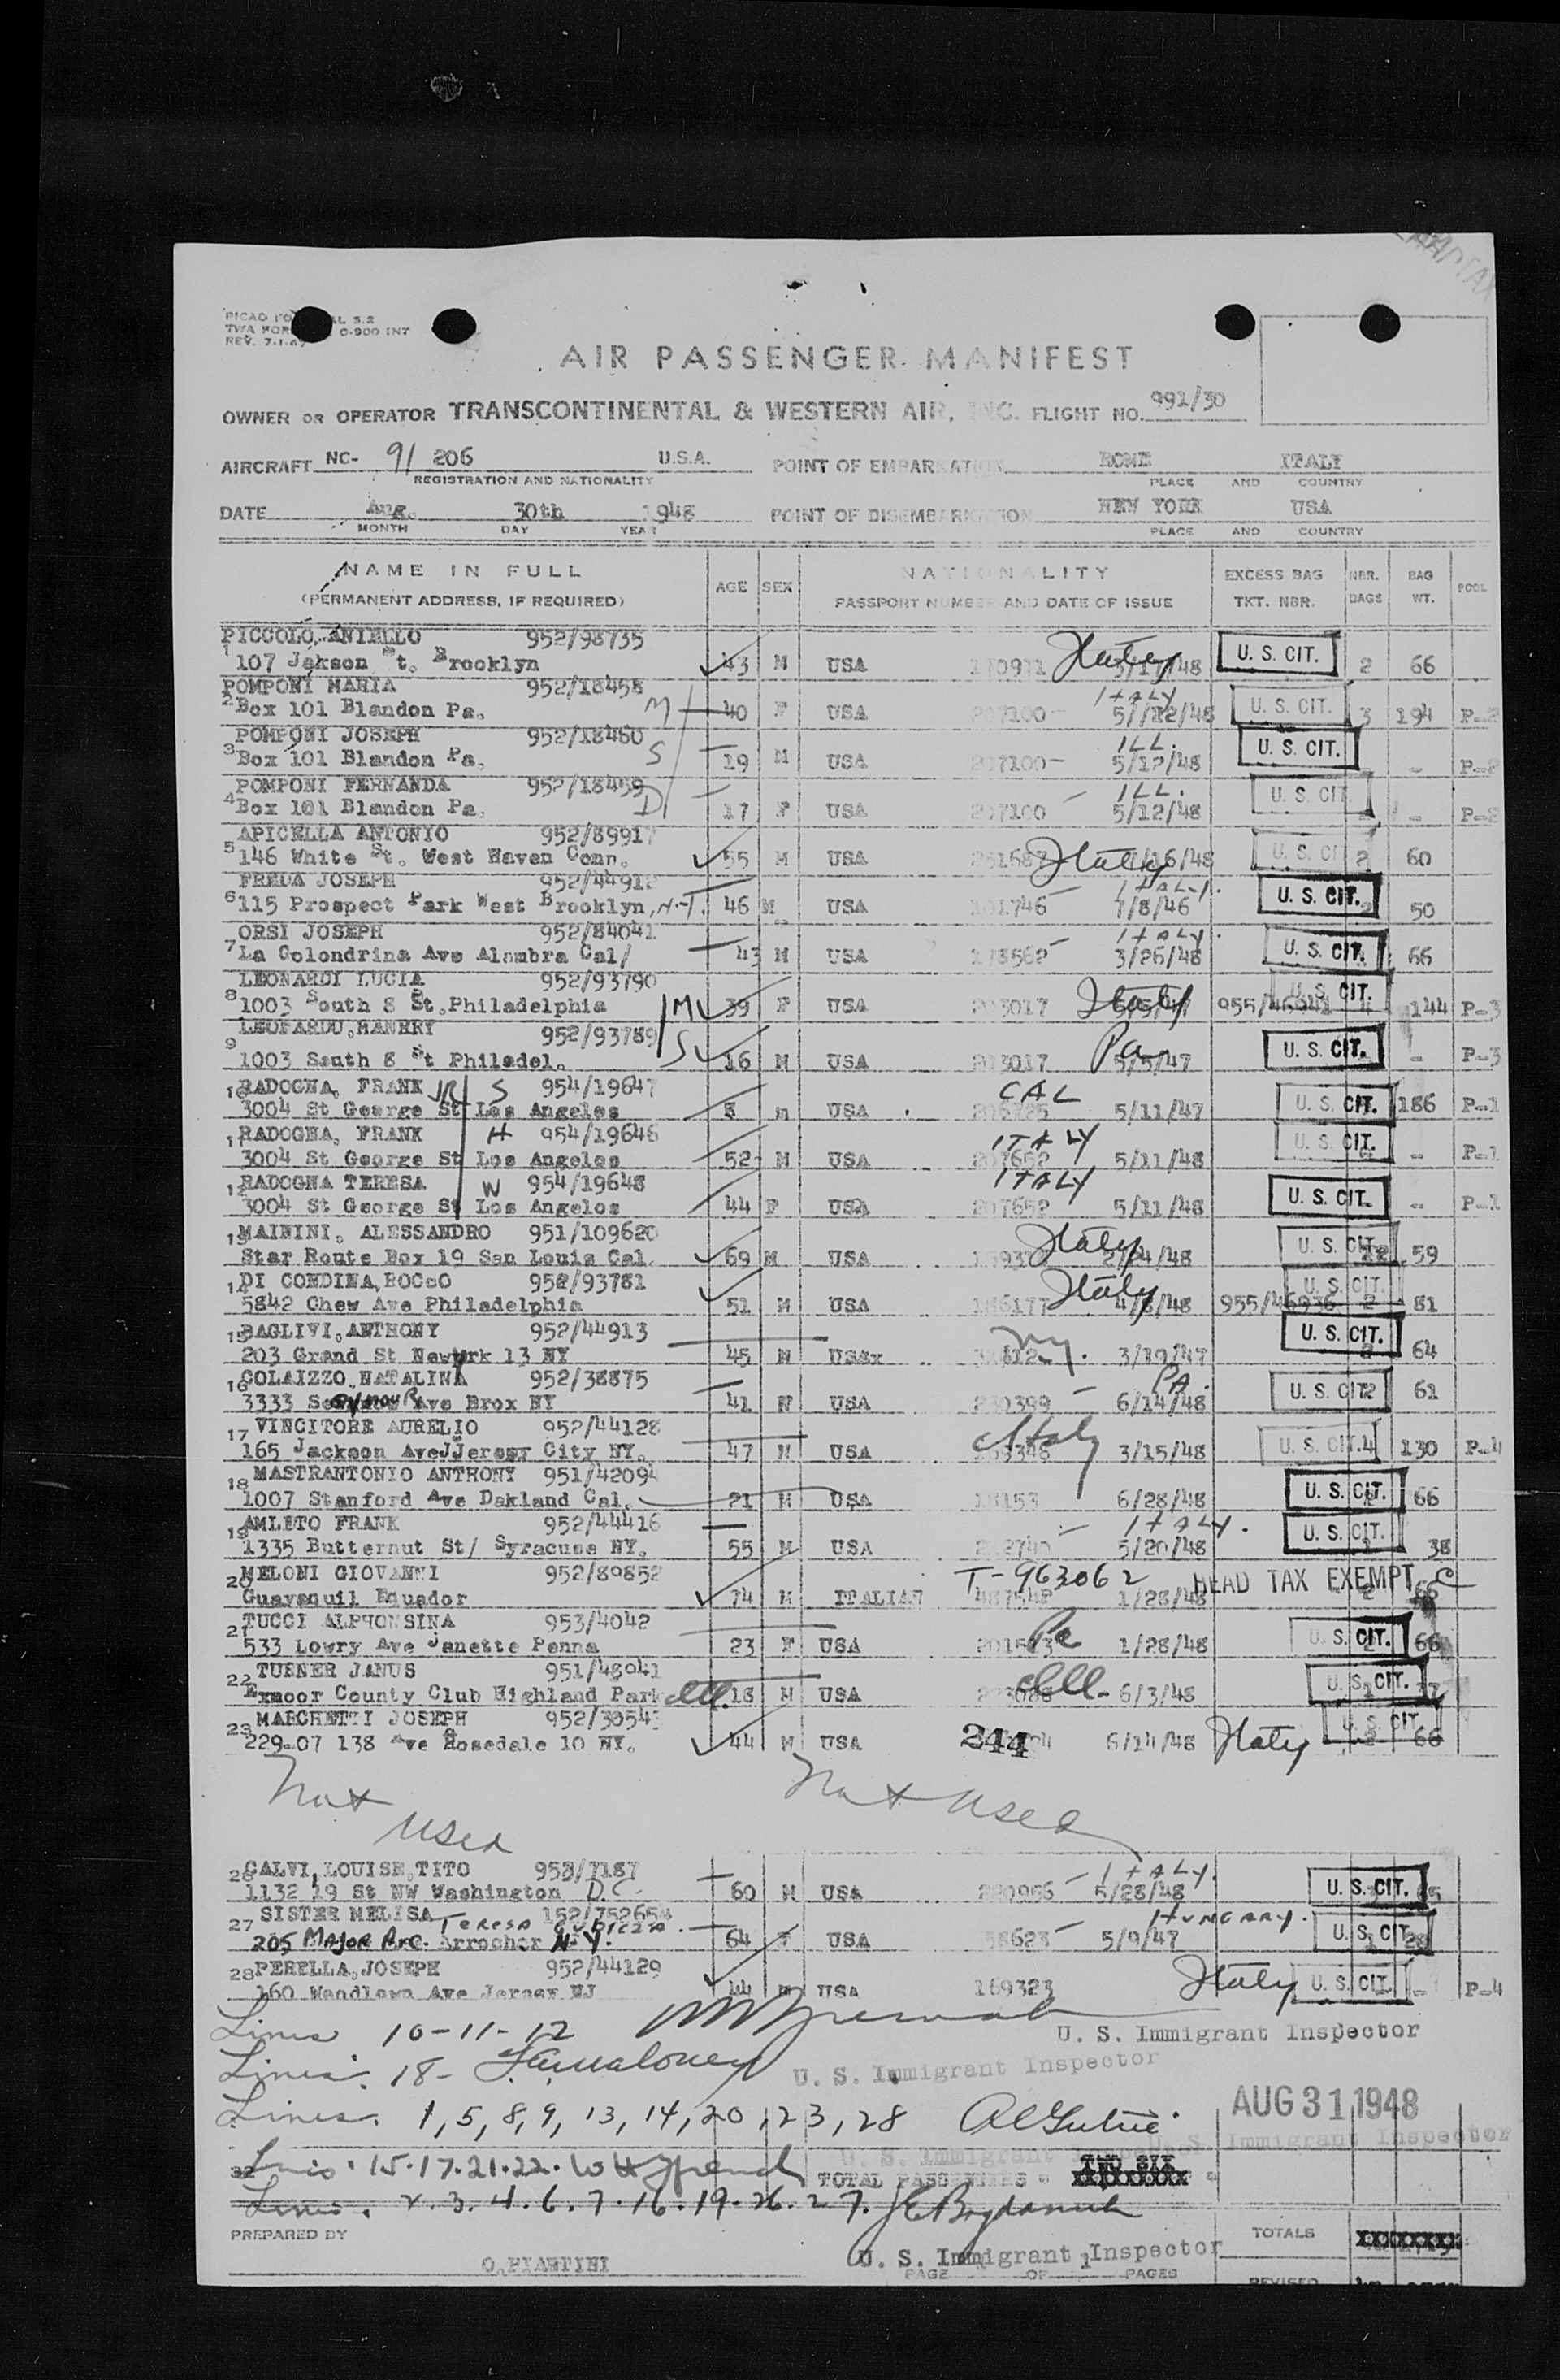 AIR PASSENGER MANIFEST
OWNER OR OPERATOR TRANSCONTINENTAL & WESTERN AIR, INC. FLIGHT NO. 991/30
AIRCRAFT NC- 91 206 U.S.A. POINT OF EMBARKATION ROME ITALY
REGISTRATION AND NATIONALITY PLACE AND COUNTRY
DATE Aug. 30th 1948 POINT OF DISEMBARKATION NEW YORK USA
MONTH DAY YEAR PLACE AND COUNTRY
NAME IN FULL AGE SEX NATIONALITY EXCESS BAG NBR. BAG POOL
(PERMANENT ADDRESS, IF REQUIRED) PASSPORT NUMBER AND DATE OF ISSUE TKT. NBR. BAGS WT.
PICCOLO, ANIELLO 952/98735
1 107 Jakson St. Brooklyn 43 M USA Italy U. S. CIT. 2 66
POMPONI MARIA 952/18458 ITALY
2 Box 101 Blandon Pa. M 40 F USA 207100 5//12/48 U. S. CIT. 3 194 P-2
POMPONI JOSEPH 952/18460 ILL.
3 Box 101 Blandon Pa. S 19 M USA 207100 5/12/48 U. S. CIT. - P-2
POMPONI FERNANDA 952/18459 ILL.
4 Box 101 Blandon Pa. D 17 F USA 207100 5/12/48 U. S. CIT - P-2
APICELLA ANTONIO 952/89917
5 146 White St. West Haven Conn. 55 M USA Italy /16/48 U. S. CI 2 60
FREDA JOSEPH 952/44912 ITALY.
6 115 Prospect Park West Brooklyn, N.Y. 46 M USA 101746 7/8/46 U. S. CIT. 2 50
ORSI JOSEPH 952/84041 ITALY.
7 La Golondrina Ave Alambra Cal/ 43 M USA 178562 3/26/48 U. S. CIT. 66
LEONARDI LUCIA 952/93790
8 1003 South 8 St. Philadelphia M 39 F USA 203017 Italy 955/46941 U. S. CIT. 144 P-3
LEONARDO, HANRRY 952/93789
9 1003 Sauth 8 St Philadel. S 16 M USA 203017 Pa 5/5/47 U. S. CIT. - P-3
10 RADOGNA, FRANK JR S 954/19647 CAL
3004 St George St Los Angeles 8 m USA 5/11/47 U. S. CIT. 186 P-1
11 RADOGNA, FRANK H 954/19646 ITALY
3004 St George St Los Angeles 52 M USA 207652 5/11/48 U. S. CIT. - P-1
12 RADOGNA TERESA W 954/19648 ITALY
3004 St George St Los Angeles 44 F USA 207652 5/11/48 U. S. CIT. - P-1
13 MAININI, ALESSANDRO 951/109620
Star Route Box 19 San Louis Cal. 69 M USA Italy U. S. CIT. 59
14 DI CONDINA, ROCCO 952/93781
5842 Chew Ave Philadelphia 51 M USA 186177 Italy 4/8/48 955/46936 U. S. CIT. 2 81
15 BAGLIVI, ANTHONY 952/44913
203 Grand St Newyork 13 NY 45 M USAx N.Y. 3/19/47 U. S. CIT. 64
16 COLAIZZO, NATALINA 952/38875 PA.
3333 Seymour Ave Brox NY 41 M USA 230399 6/14/48 U. S. CIT. 2 61
17 VINCITORE AURELIO 952/44128
165 Jackson Ave Jersey City NY. 47 M USA Italy 3/15/48 U. S. CIT. 4 130 P-4
18 MASTRANTONIO ANTHONY 951/42094
1007 Stanford Ave Oakland Cal. 21 M USA 18153 6/28/48 U. S. CIT. 66
19 AMLETO FRANK 952/44416 ITALY.
1335 Butternut St/ Syracuse NY. 55 M USA 5/20/48 U. S. CIT. 1 38
20 MELONI GIOVANNI 952/89852 T-963062 HEAD TAX EXEMPT
Guayaquil Equador 74 M ITALIAN 1/28/48
21 TUCCI ALPHONSINA 953/4042
533 Lowry Ave Janette Penna 23 F USA Pa 1/28/48 U. S. CIT. 66
22 TURNER JANUS 951/48041
Exmoor County Club Highland Park Ill. 18 M USA Ill- 6/3/48 U. S. CIT.
23 MARCHETTI JOSEPH 952/3054
229-07 138 Ave Rosedale 10 NY. 44 M USA 244 6/14/48 Italy U. S. CIT. 2 66
Not Used Not Used
26 CALVI, LOUISE, TITO 953/7187 ITALY.
1132 19 St NW Washington D.C. 60 M USA 220956 5/28/48 U. S. CIT.
27 SISTER MELISA Teresa 152/752654 HUNGARY.
205 Major Ave. Arrochar N.Y. 64 F USA 58623 5/9/47 U. S. CIT. 28
28 PERELLA, JOSEPH 952/44129
160 Woodlawn Ave Jersey NJ 44 M USA 169323 Italy U. S. CIT. - P-4
Lines 10-11-12
U. S. Immigrant Inspector
Lines. 18-
U. S. Immigrant Inspector
AUG 31 1948
Lines. 1, 5, 8, 9, 13, 14, 20, 23, 28
U. S. Immigrant Inspector
Lines. 15.17.21.22.
TOTAL PASSENGERS TWO SIX
Lines. 2.3.4.6.7.16.19.26.27.
PREPARED BY TOTALS
U. S. Immigrant Inspector
PAGE OF 1 PAGES REVISED